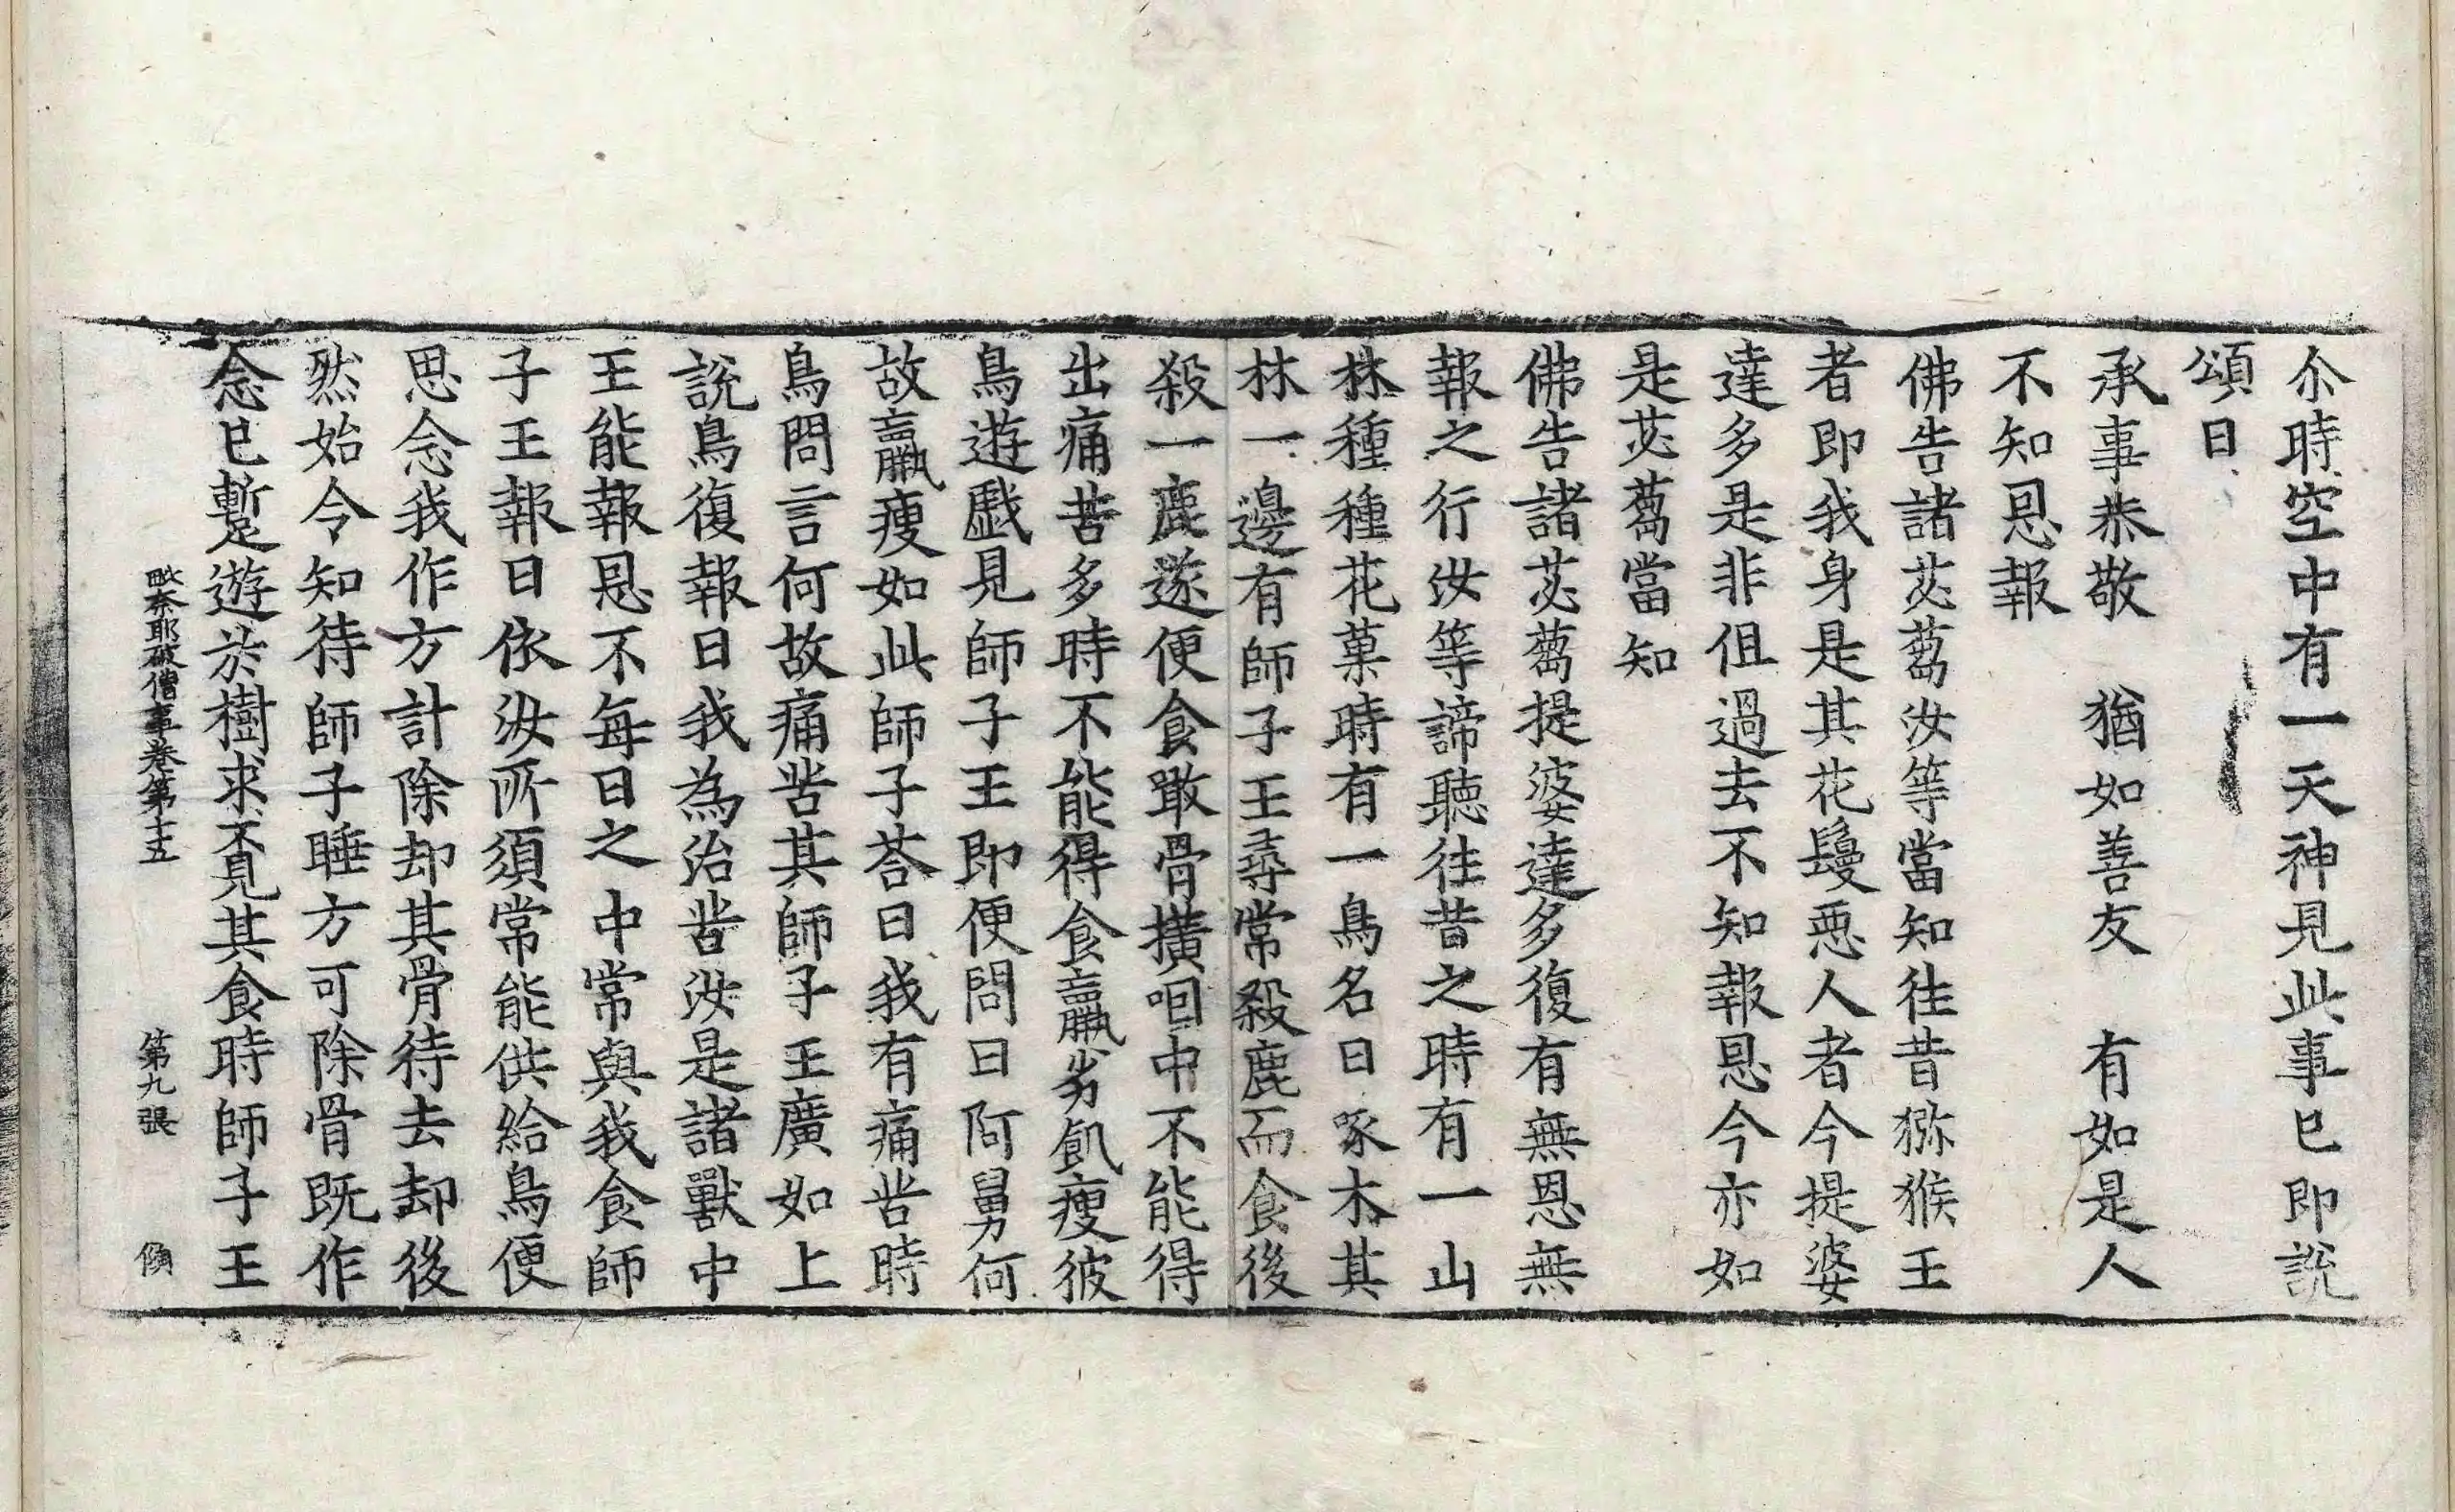 尒時空中有一天神見此事已即說
頌曰
承事恭敬　猶如善友　有如是人
不知恩報
佛告諸苾蒭汝等當知往昔獼猴王
者即我身是其花鬘惡人者今提婆
達多是非但過去不知報恩今亦如
是苾蒭當知
佛告諸苾蒭提婆達多復有無恩無
報之行汝等諦聽往昔之時有一山
林種種花菓時有一鳥名曰啄木其
林一邊有師子王尋常殺鹿而食後
殺一鹿遂便食噉骨撗咽中不能得
出痛苦多時不能得食羸劣飢瘦彼
鳥遊戲見師子王即便問曰阿舅何
故羸瘦如此師子荅曰我有痛苦時
鳥問言何故痛苦其師子王廣如上
說鳥復報曰我為治苦汝是諸獸中
王能報恩不每日之中常與我食師
子王報曰依汝所須常能供給鳥便
思念我作方計除却其骨待去却後
然始令知待師子睡方可除骨既作
念已蹔遊於樹求不見其食時師子王
毗奈耶破僧事卷第十五　第九張　傾